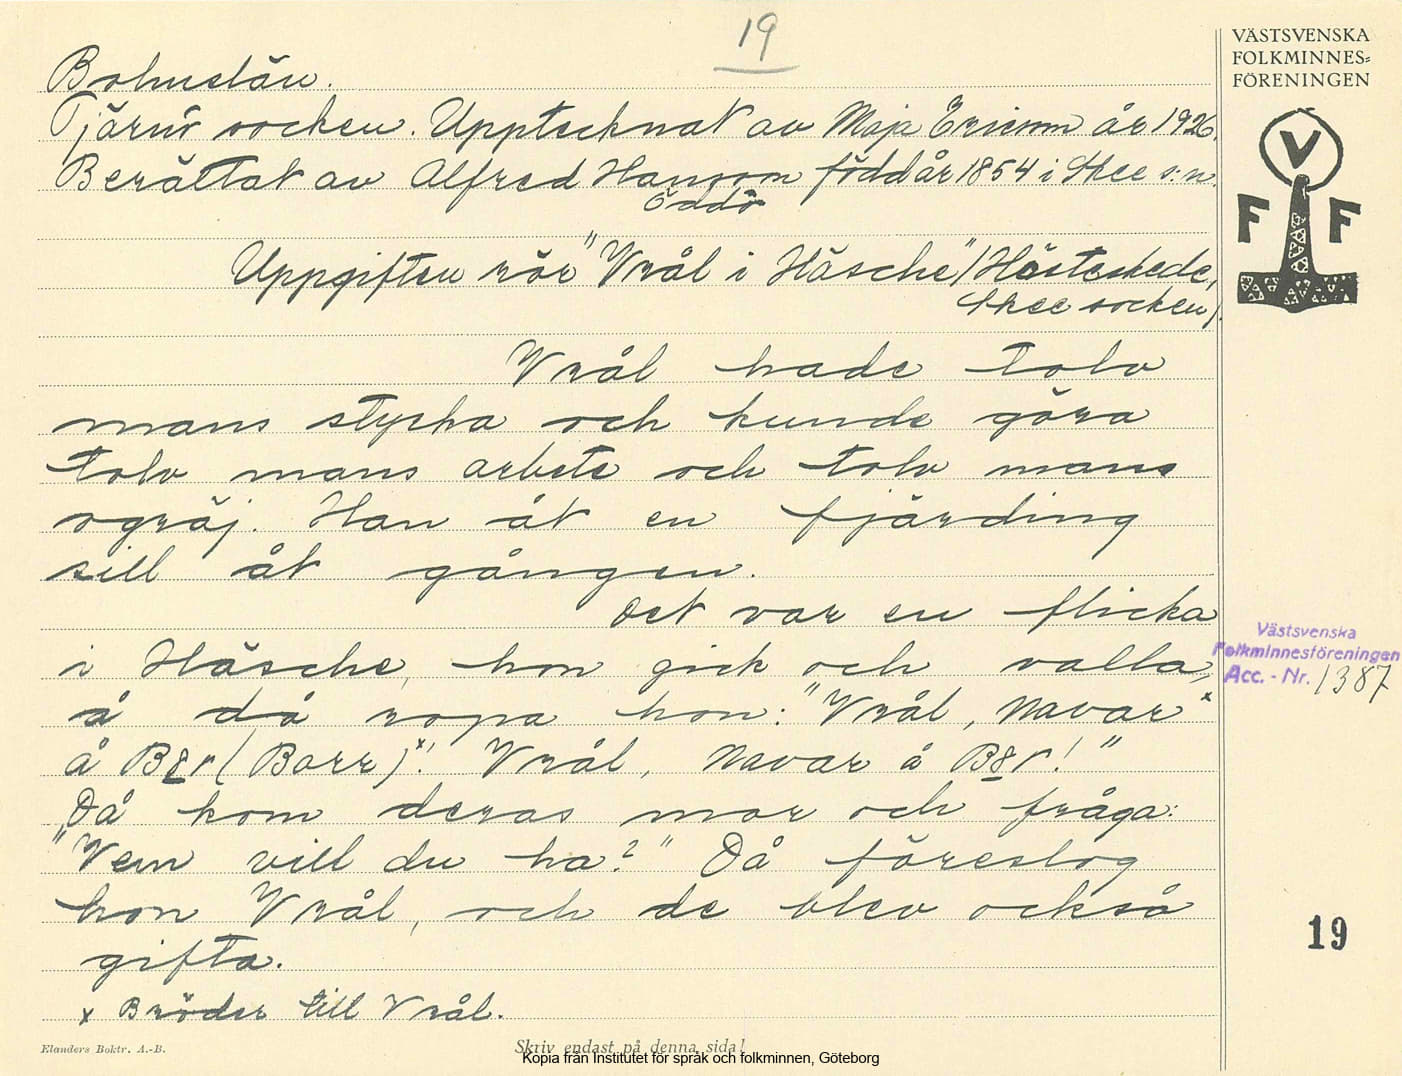 19
VÄSTSVENSKA
FOLKMINNES=
FÖRENINGEN
V
F F
Bohuslän.
Tjärnö socken. Upptecknat av Maja Ericson år 1926.
Berättat av Alfred Hansson född år 1854 i Skee s:n.
Öddö
Uppgiften rör "Vrål i Häsche" (Hästeskede,
Skee socken).
Vrål hade tolv
mans styrka och kunde göra
tolv mans arbete och tolv mans
ogräj. Han åt en fjärding
sill åt gången.
Det var en flicka
i Häsche, hon gick och valla,
å då ropa hon: "Vrål, Navar x
å B8r (Barr) x! Vrål, Navar å B8r!"
Då kom deras mor och fråga:
"Vem vill du ha?" Då föreslog
hon Vrål, och de blev också
gifta.
x Bröder till Vrål.
Västsvenska
Folkminnesföreningen
Acc. - Nr. 1387
19
Elanders Boktr. A.-B.
Skriv endast på denna sida!
Kopia från Institutet för språk och folkminnen, Göteborg